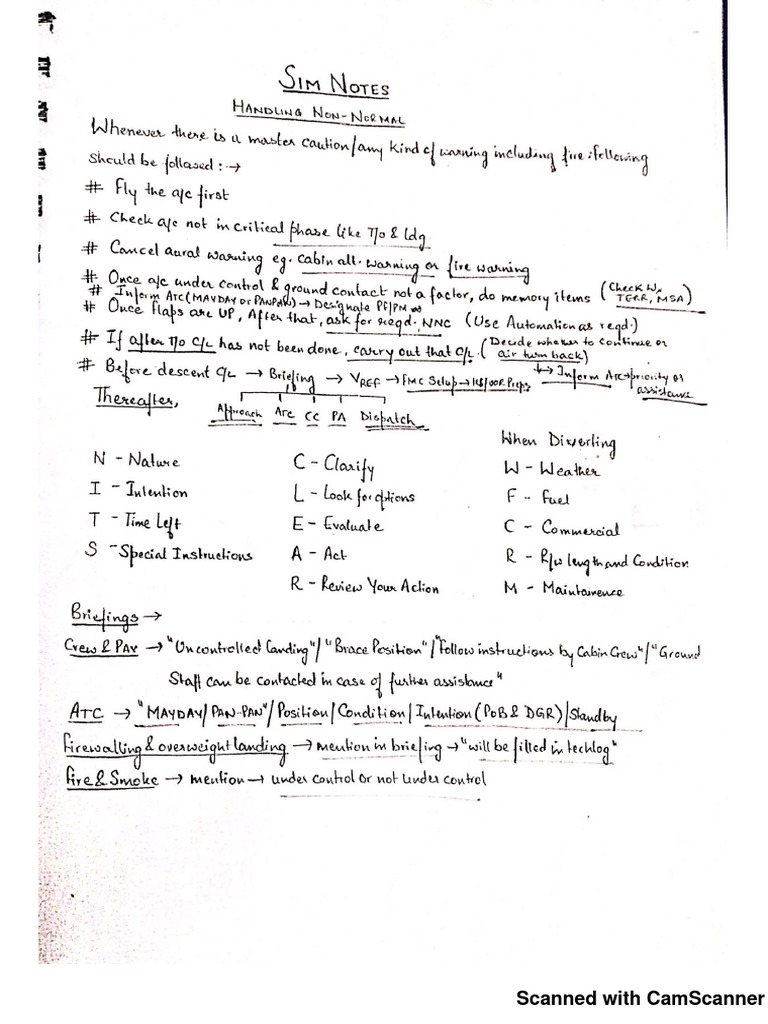 SIM NOTES
HANDLING NON-NORMAL
Whenever there is a master caution/any kind of warning including fire: following
should be followed :→
# Fly the a/c first
# Check a/c not in critical phase like T/o & Ldg
# Cancel aural warning eg. cabin alt. warning or fire warning
# Once a/c under control & ground contact not a factor, do memory items (Check Wx, TERR, MSA)
# Inform ATC (MAYDAY or PANPAN) → Designate PF/PM
# Once flaps are UP, After that, ask for reqd. NNC (Use Automation as reqd.)
# If after T/o C/L has not been done, carry out that C/L. (Decide whether to continue or air turn back)
↳ Inform ATC → priority or assistance
# Before descent C/L → Briefing → VREF → FMC Setup → ILS/OOR Preps
Thereafter,
Approach ATC CC PA Dispatch
When Diverting
N - Nature C - Clarify W - Weather
I - Intention L - Look for options F - Fuel
T - Time Left E - Evaluate C - Commercial
S - Special Instructions A - Act R - R/w length and Condition
R - Review Your Action M - Maintainence
Briefings →
Crew & PAX → "Uncontrolled Landing"/ "Brace Position"/ "Follow instructions by Cabin Crew"/ "Ground
Staff can be contacted in case of further assistance"
ATC → "MAYDAY/ PAN-PAN"/ Position/ Condition/ Intention (POB & DGR)/ Standby
Firewalling & overweight landing → mention in briefing → "will be filled in techlog"
Fire & Smoke → mention → under control or not under control
Scanned with CamScanner